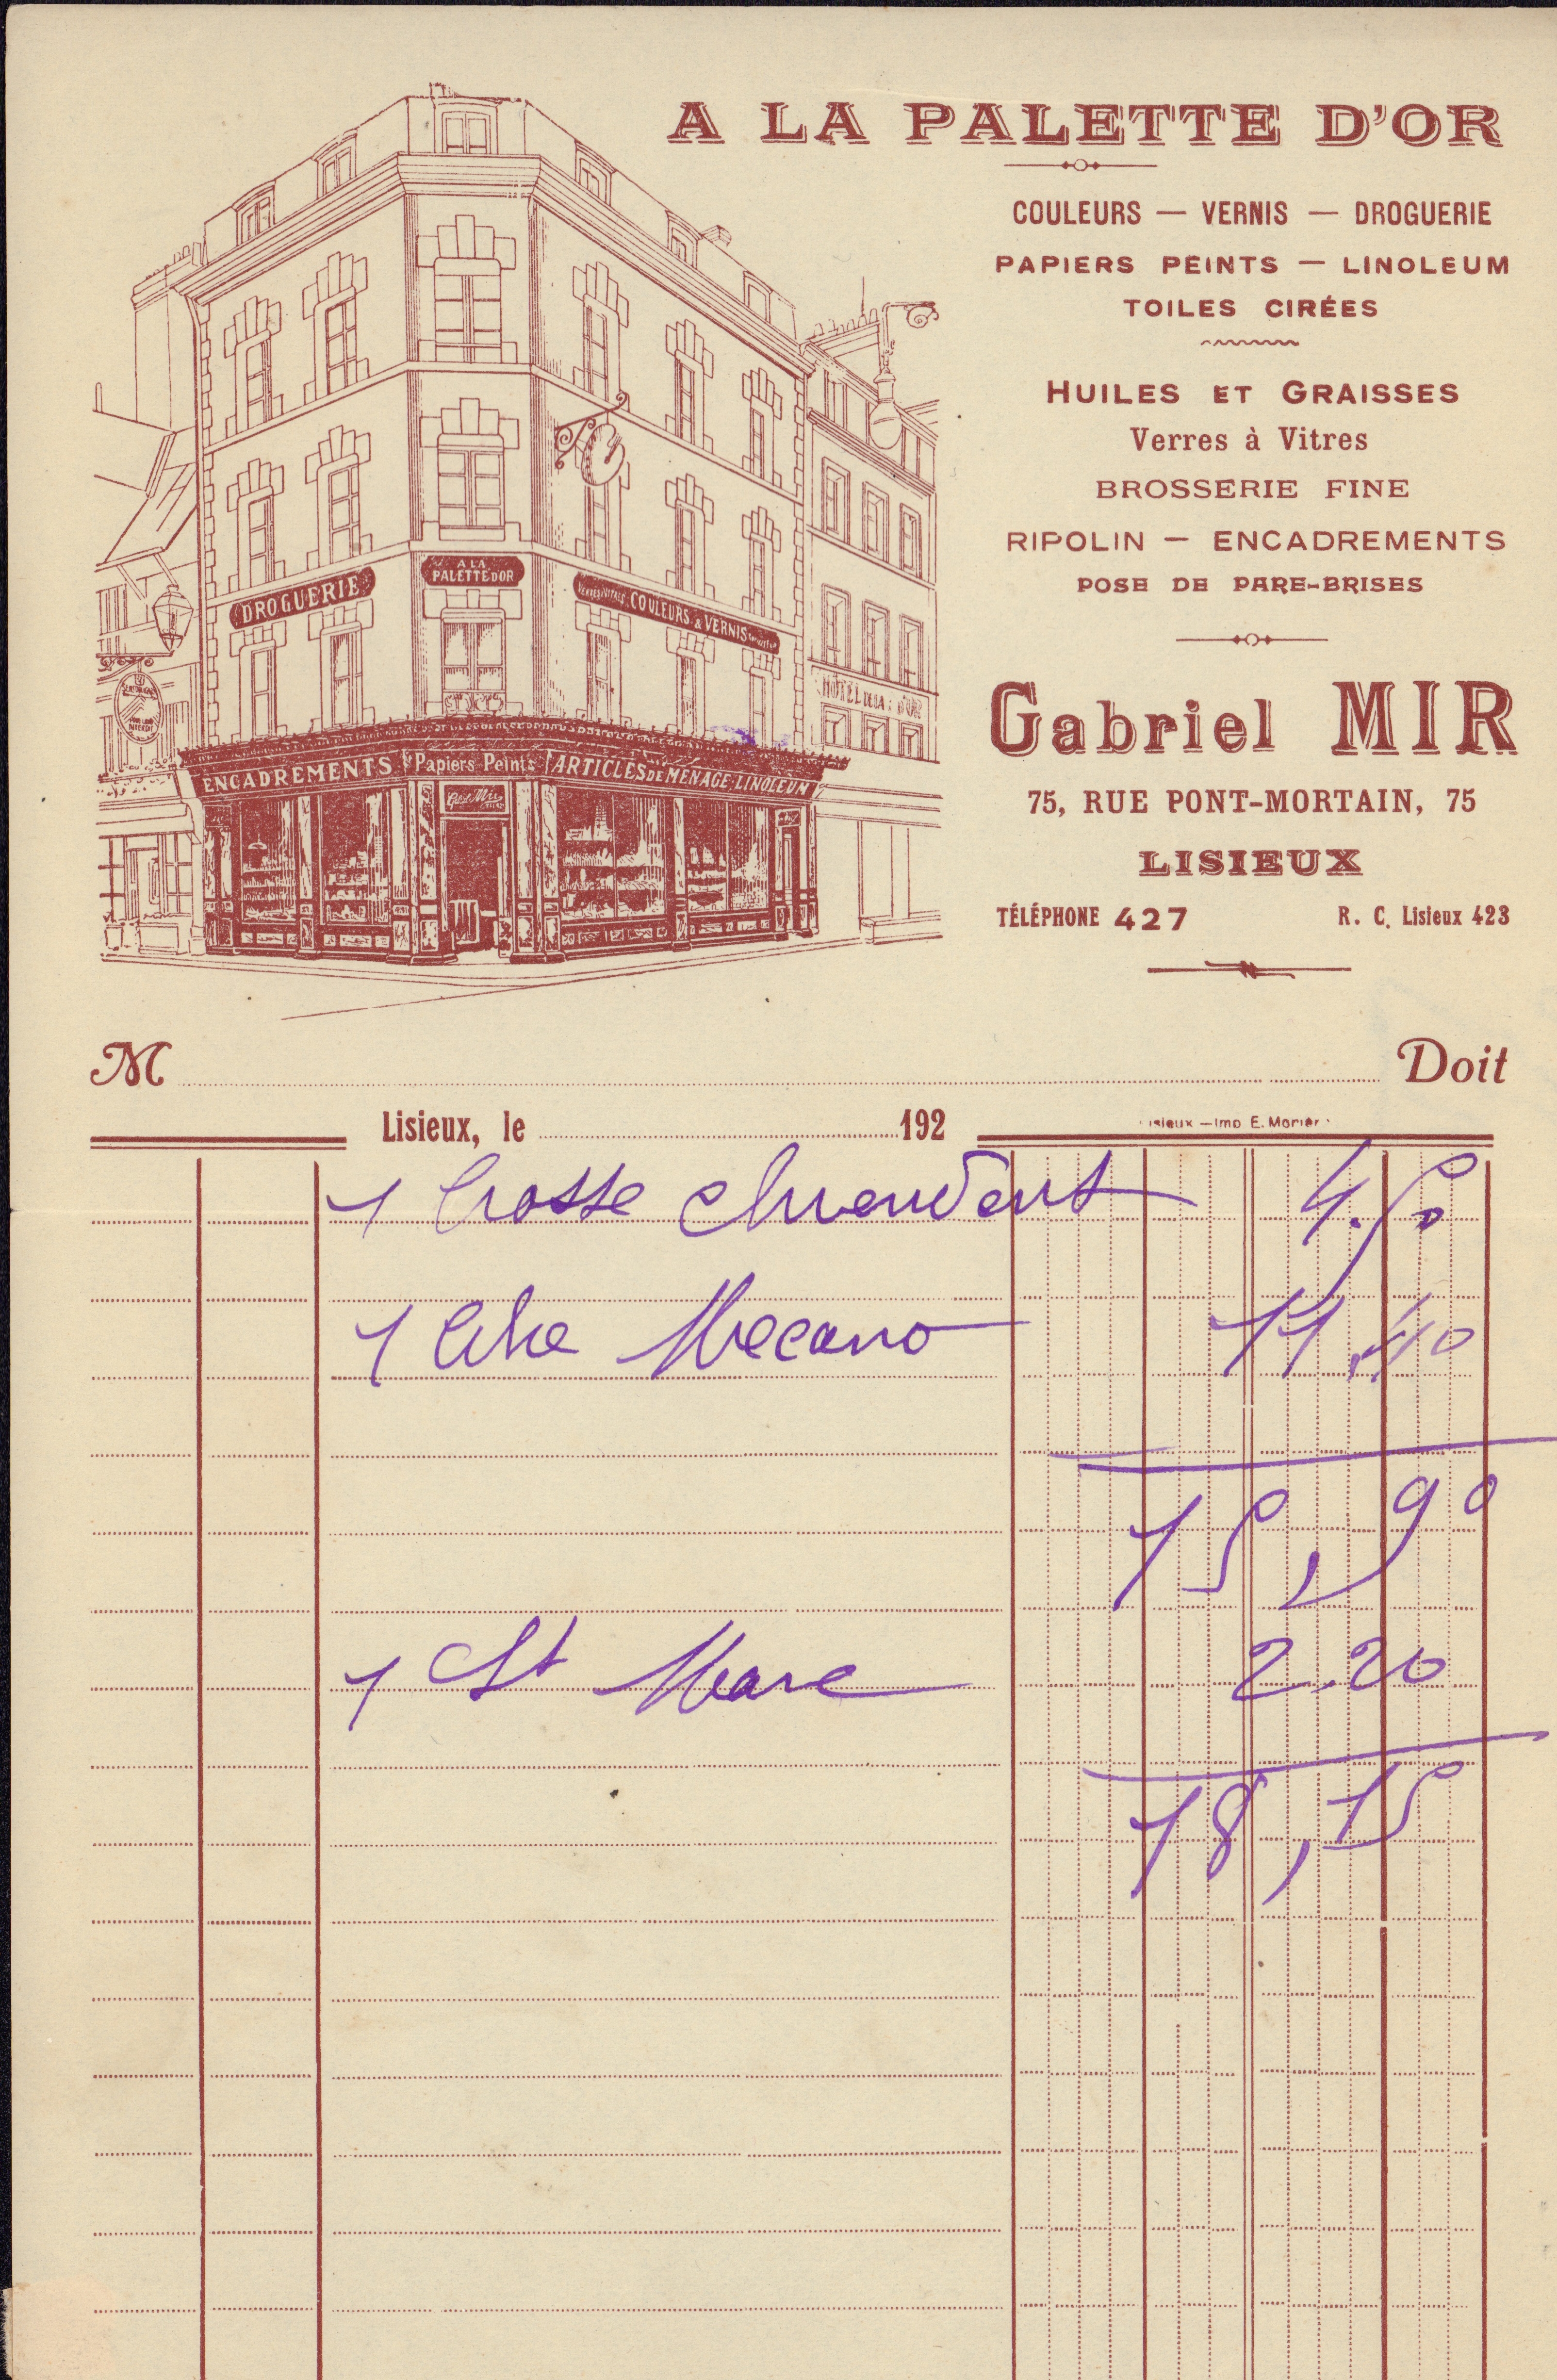 A LA PALETTE D'OR
COULEURS — VERNIS — DROGUERIE
PAPIERS PEINTS — LINOLEUM
TOILES CIRÉES
HUILES ET GRAISSES
Verres à Vitres
BROSSERIE FINE
RIPOLIN — ENCADREMENTS
POSE DE PARE-BRISES
Gabriel MIR
75, RUE PONT-MORTAIN, 75
LISIEUX
TÉLÉPHONE 427 R. C. Lisieux 423
DROGUERIE
A LA
PALETTE D'OR
COULEURS & VERNIS
ENCADREMENTS Papiers Peints ARTICLES DE MÉNAGE, LINOLEUM
M Doit
Lisieux, le 192
Imp E. Morière
1 brosse chiendent 4.50
1 Mecano 11,40
15,90
1 St Marc 2.20
18,15